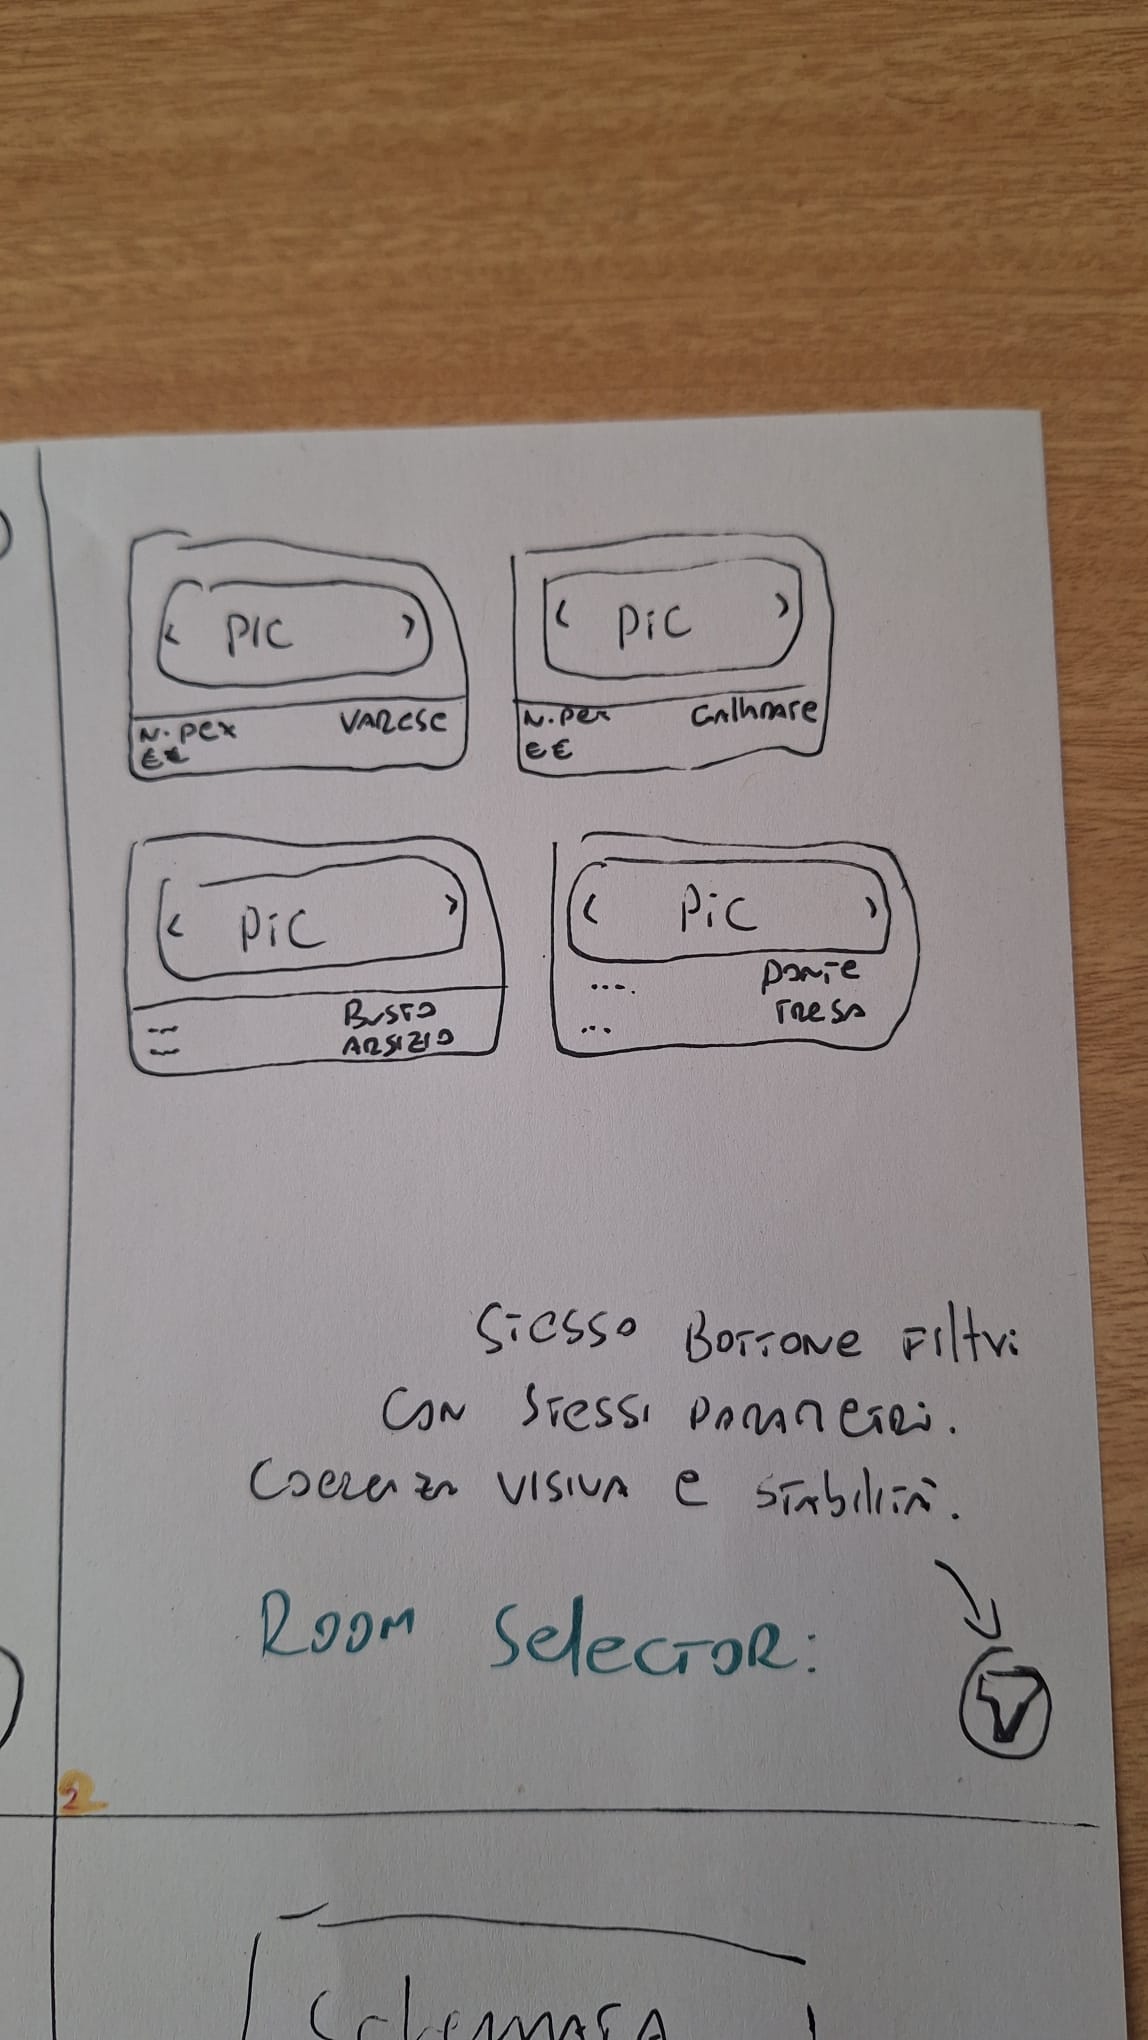 < PIC >
N. PEX VARESE
€€
< PiC >
N. Per Gallarate
€€
< PiC >
BUSTO
ARSIZIO
< PiC >
.... PONTE
... TRESA
STESSO BOTTONE FIltri
CON STESSI PARAMETRI.
COERENZA VISIVA E STABILITÀ.
ROOM SelecTOR:
2
SCHERMATA